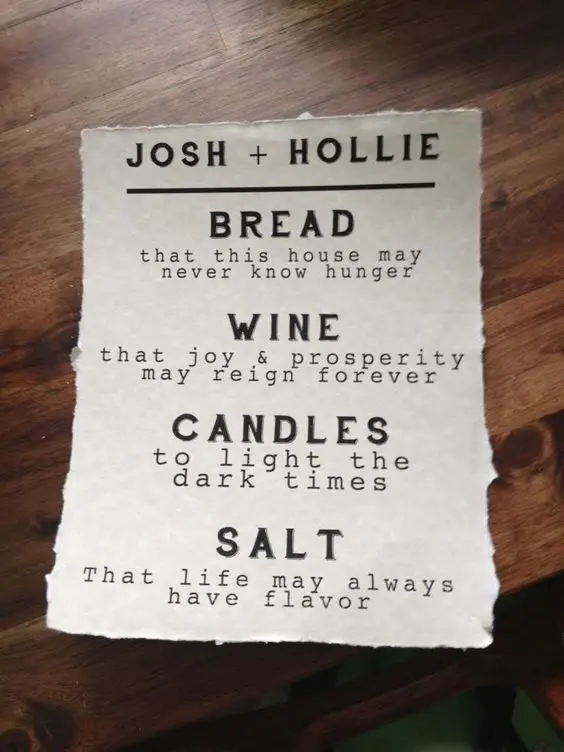 JOSH + HOLLIE
BREAD
that this house may
never know hunger
WINE
that joy & prosperity
may reign forever
CANDLES
to light the
dark times
SALT
That life may always
have flavor